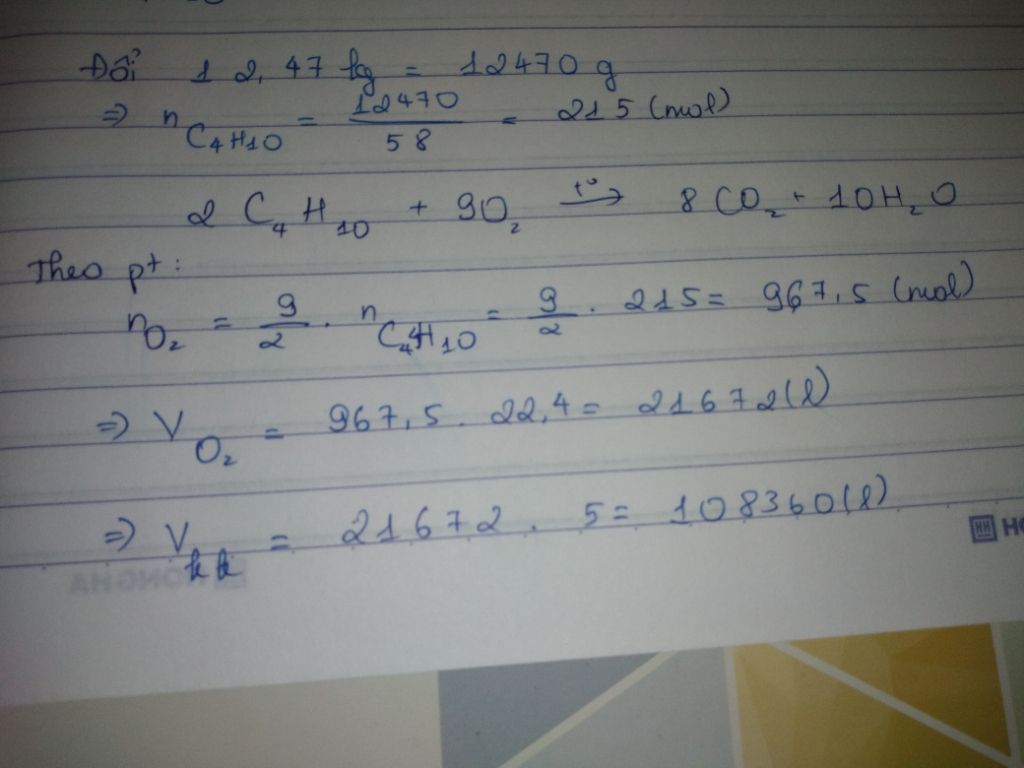 Đổi 12,47 kg = 12470 g
⇒ n C₄H10 = 12470/58 = 215 (mol)
2 C₄H10 + 9O₂ t°→ 8CO₂ + 10H₂O
Theo pt:
nO₂ = 9/2 . n C₄H10 = 9/2 . 215 = 967,5 (mol)
⇒ V O₂ = 967,5 . 22,4 = 21672 (l)
⇒ V kk = 21672 . 5 = 108360 (l)